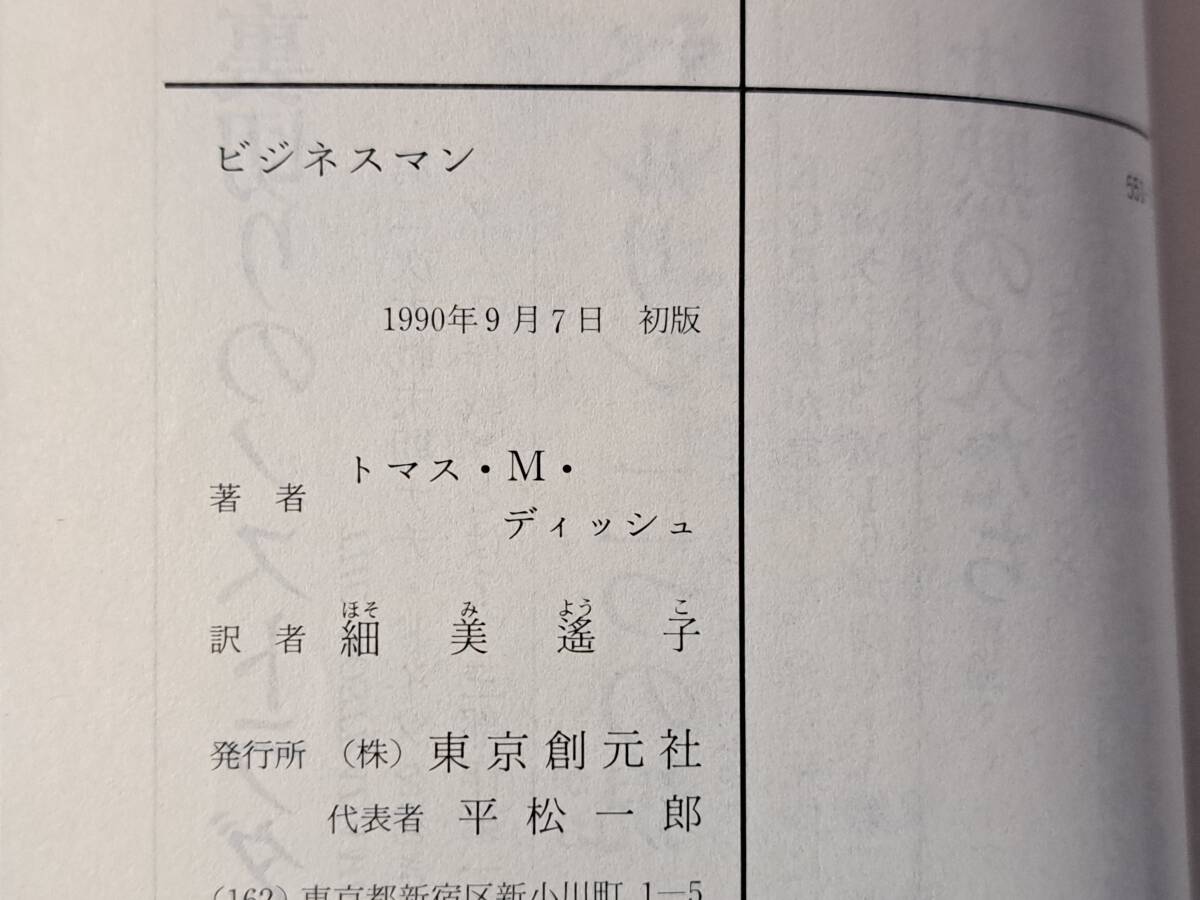 ビジネスマン
1990年9月7日 初版
著者 トマス・M・
ディッシュ
ほそ み よう こ
訳者 細美遙子
発行所 (株) 東京創元社
代表者 平松一郎
(162) 東京都新宿区新小川町 1―5